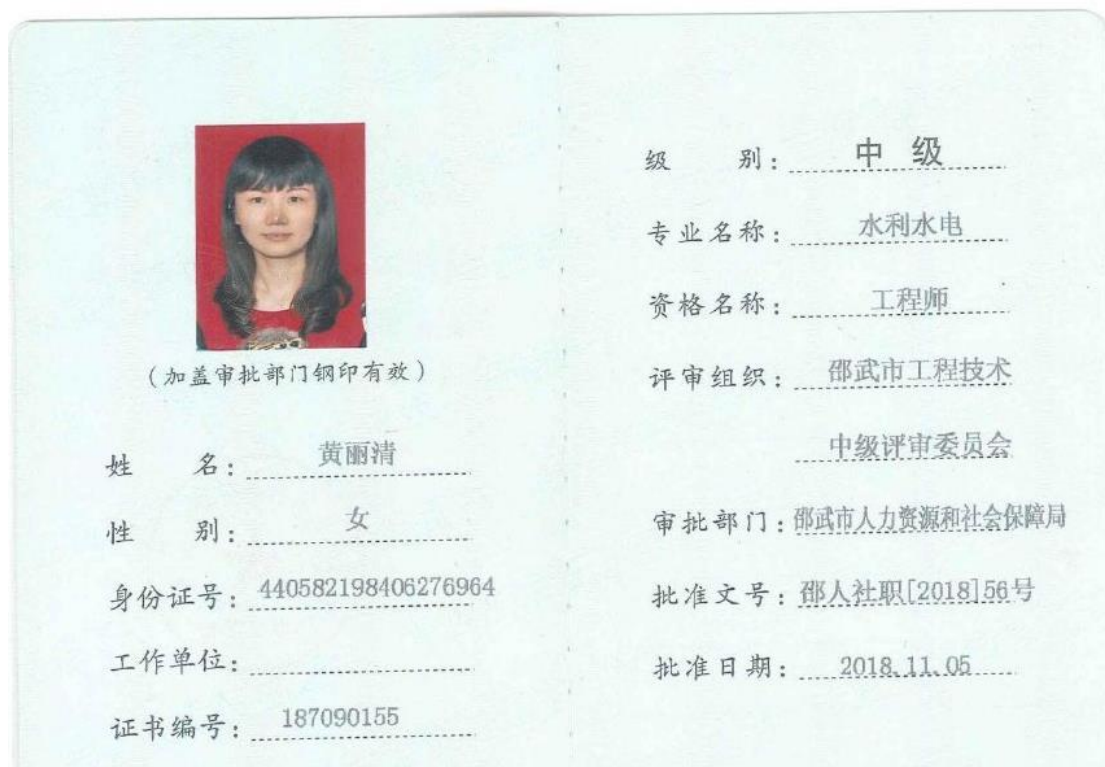 (加盖审批部门钢印有效)
姓 名: 黄丽清
性 别: 女
身份证号: 440582198406276964
工作单位:
证书编号: 187090155
级 别: 中 级
专业名称: 水利水电
资格名称: 工程师
评审组织: 邵武市工程技术
中级评审委员会
审批部门: 邵武市人力资源和社会保障局
批准文号: 邵人社职[2018]56号
批准日期: 2018.11.05